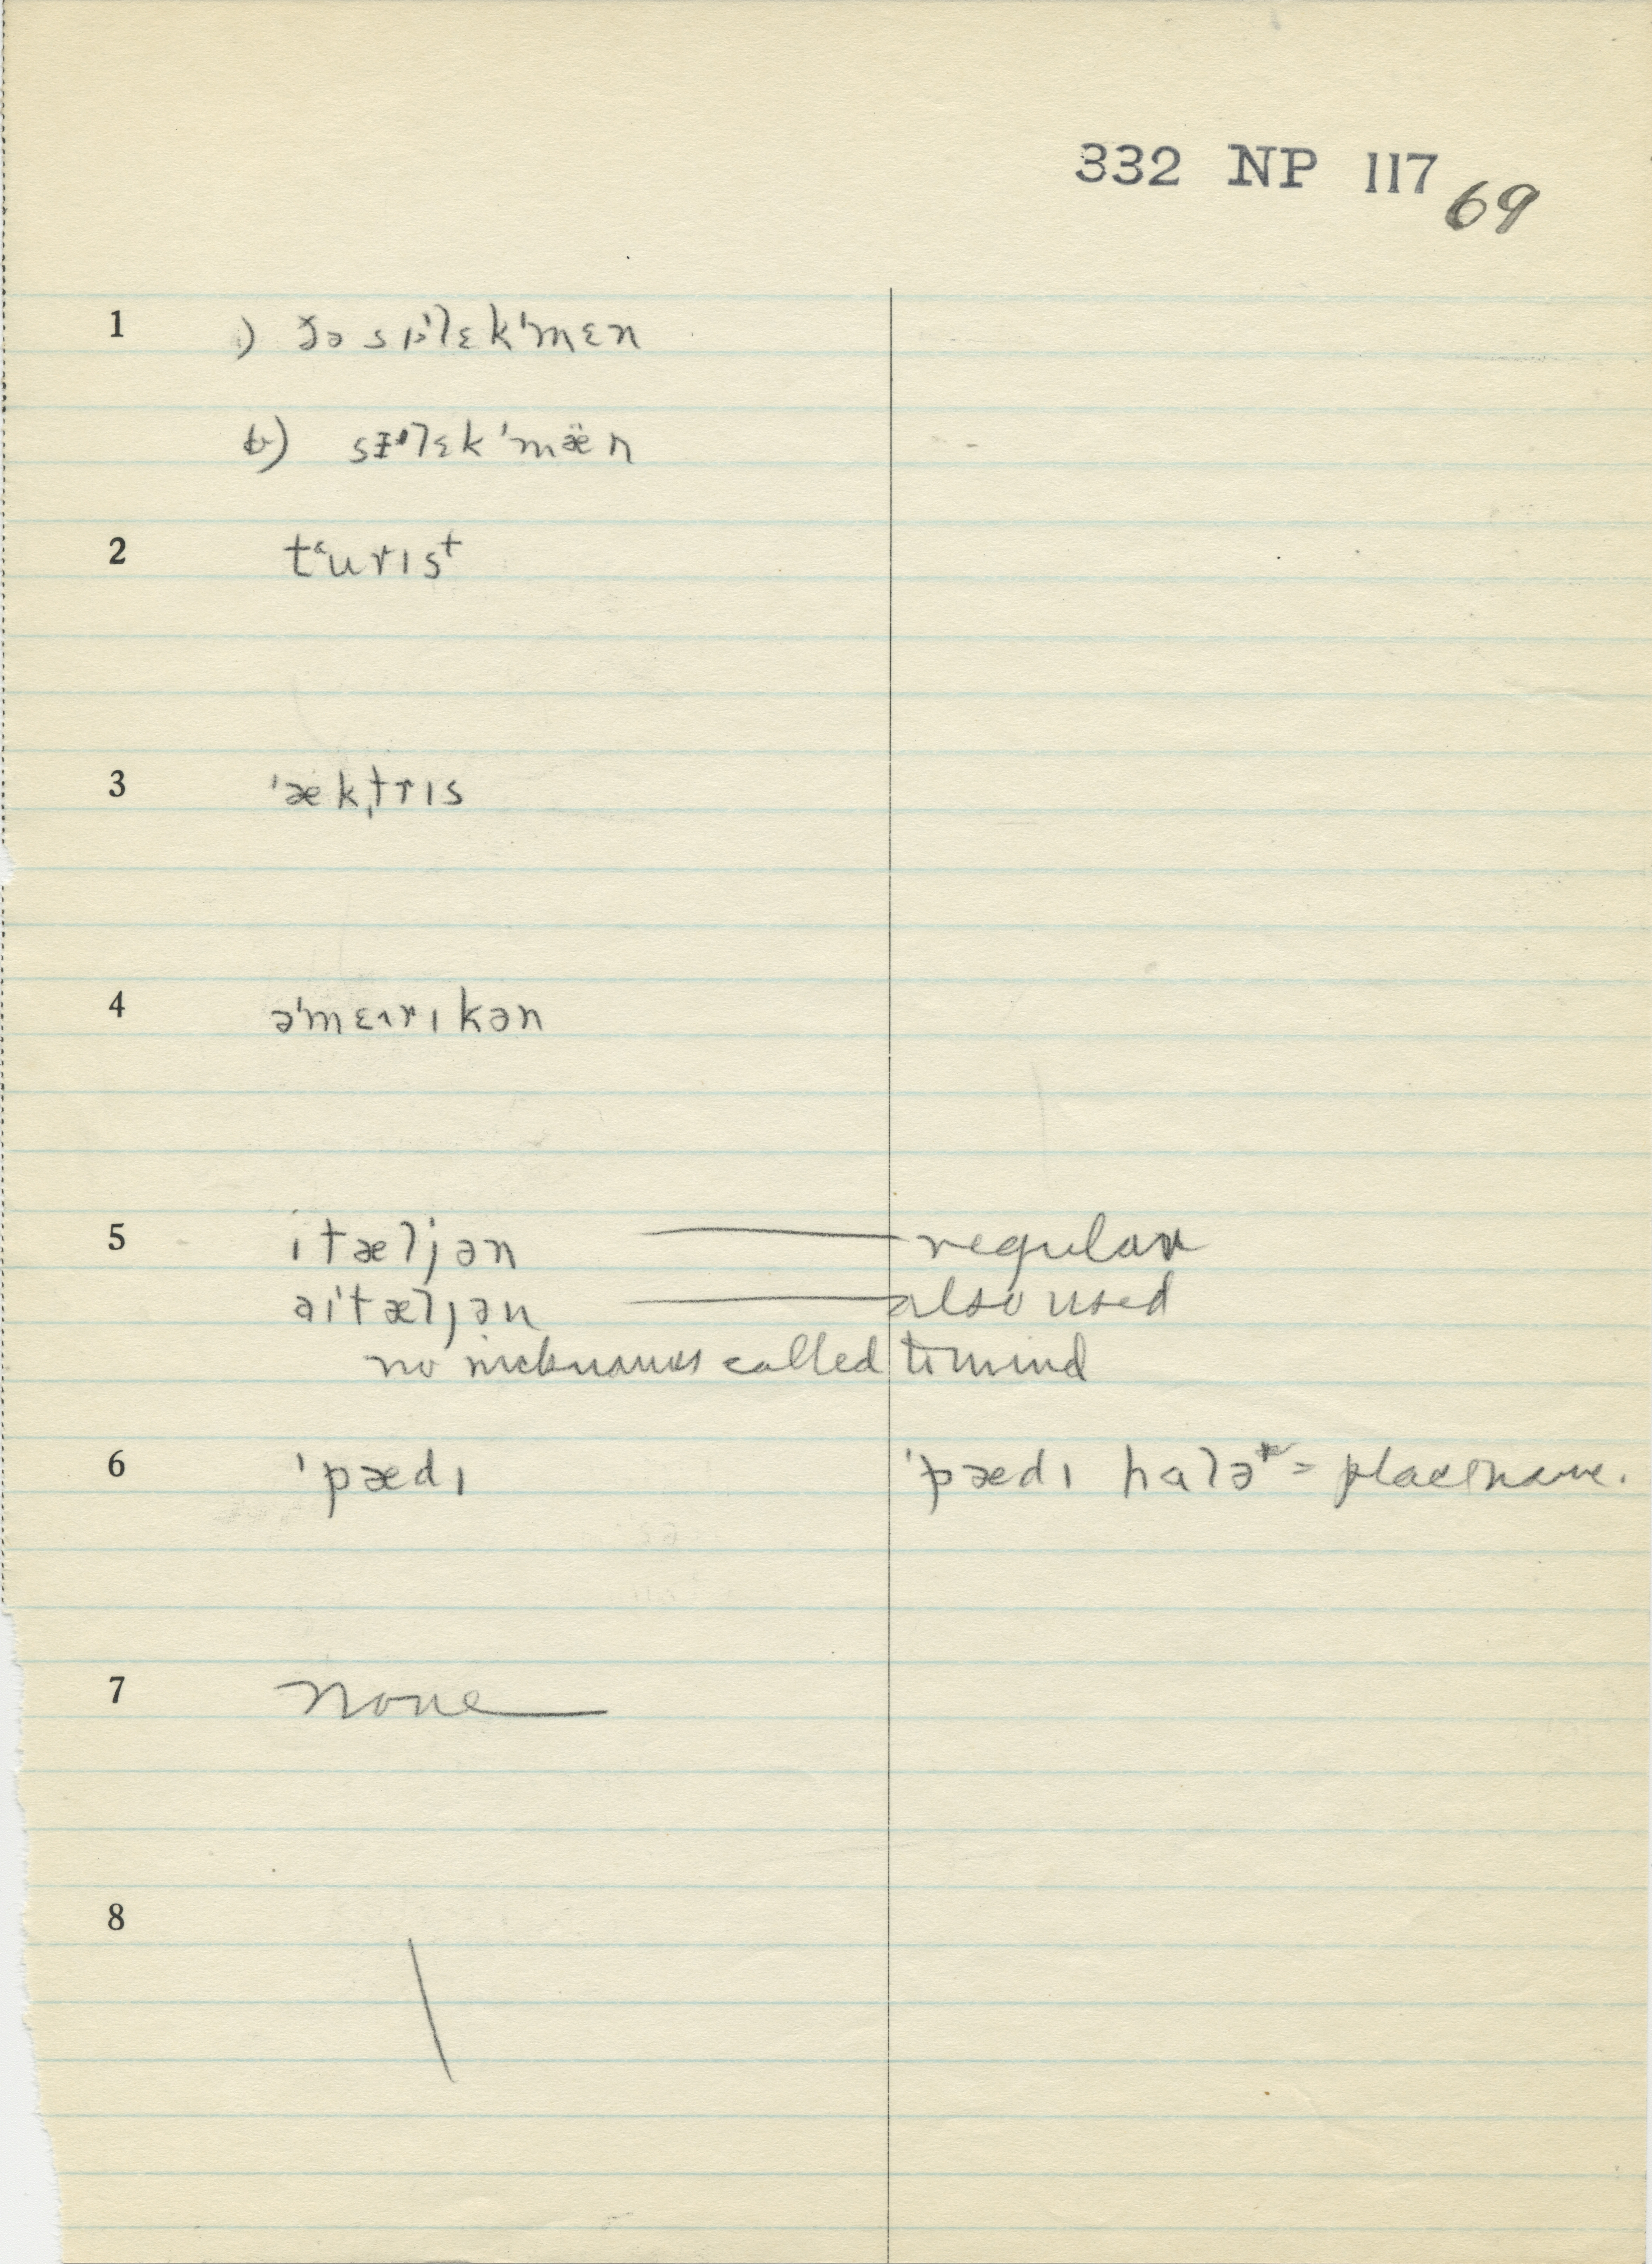 332 NP 117 69
1 ) ðə sɪˈlɛkˈmɛn
b) sɪˈlɛkˈmæn
2 tʻurɪst
3 ˈæktrɪs
4 əˈmɛɪrɪkən
5 ɪtæljən — regular
aɪˈtæljən — also used
no nicknames called to mind
6 ˈpædɪ ˈpædɪ halə = placename.
7 none
8